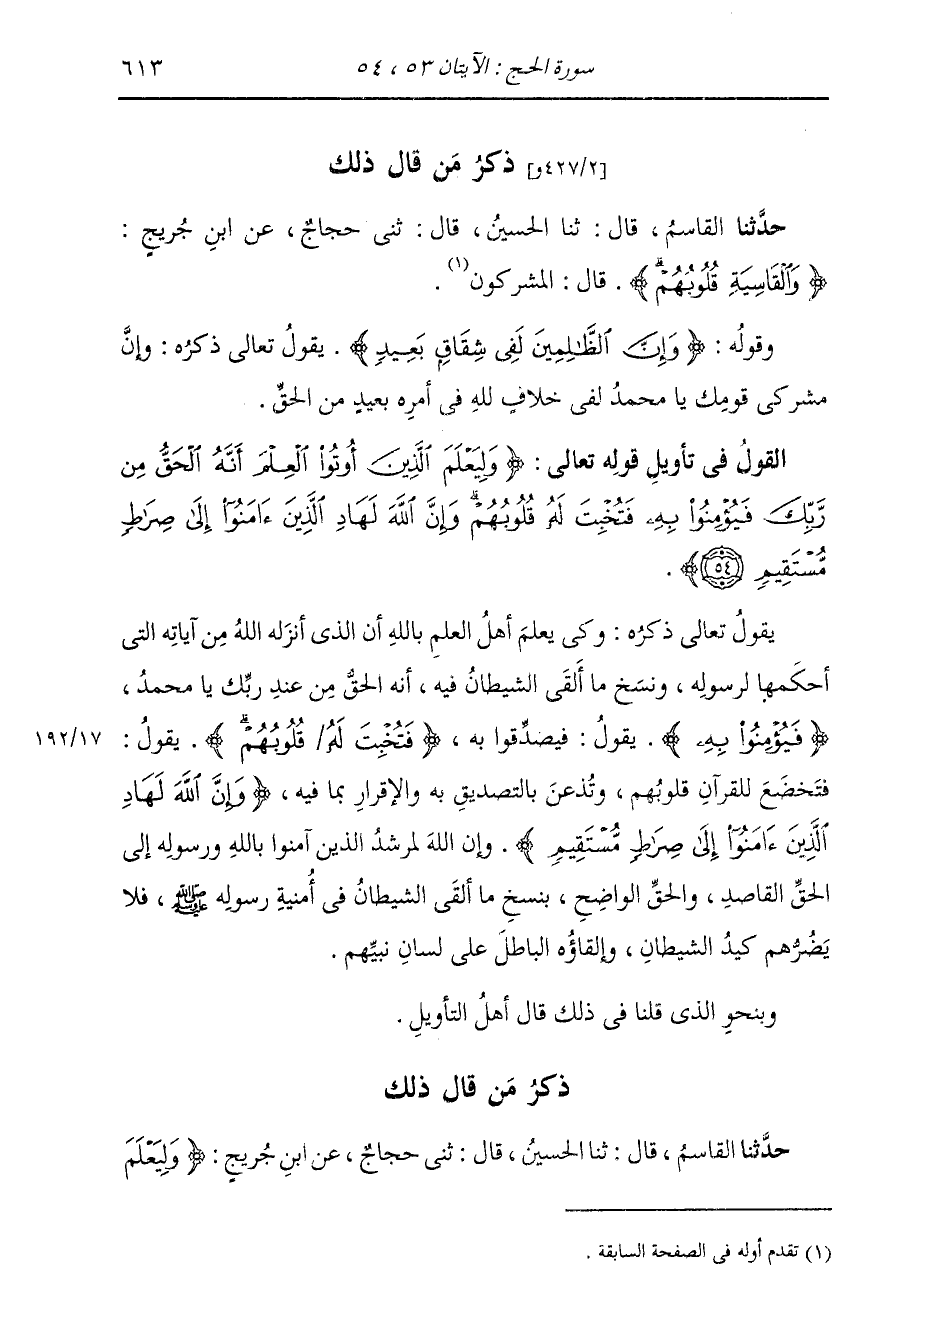 سورة الحج : الآيتان ٥٣ ، ٥٤ ٦١٣
[٤٢٧/٢و] ذكرُ مَن قال ذلك
حدَّثنا القاسمُ ، قال : ثنا الحسينُ ، قال : ثنى حجاجٌ ، عن ابنِ جُريجٍ :
﴿ وَٱلْقَاسِيَةِ قُلُوبُهُمْۗ ﴾ . قال : المشركون(١) .
وقولُه : ﴿ وَإِنَّ ٱلظَّـٰلِمِينَ لَفِى شِقَاقٍۭ بَعِيدٍ ﴾ . يقولُ تعالى ذكرُه : وإنَّ
مشركى قومِك يا محمدُ لفى خلافٍ للهِ فى أمرِه بعيدٍ من الحقِّ .
القولُ فى تأويلِ قولِه تعالى : ﴿ وَلِيَعْلَمَ ٱلَّذِينَ أُوتُوا۟ ٱلْعِلْمَ أَنَّهُ ٱلْحَقُّ مِن
رَّبِّكَ فَيُؤْمِنُوا۟ بِهِۦ فَتُخْبِتَ لَهُۥ قُلُوبُهُمْۗ وَإِنَّ ٱللَّهَ لَهَادِ ٱلَّذِينَ ءَامَنُوٓا۟ إِلَىٰ صِرَٰطٍ
مُّسْتَقِيمٍ ٥٤ ﴾ .
يقولُ تعالى ذكرُه : وكى يعلمَ أهلُ العلمِ باللهِ أن الذى أنزَله اللهُ مِن آياتِه التى
أحكَمها لرسولِه ، ونسَخ ما أَلقَى الشيطانُ فيه ، أنه الحقُّ مِن عندِ ربِّك يا محمدُ ،
﴿ فَيُؤْمِنُوا۟ بِهِۦ ﴾ . يقولُ : فيصدِّقوا به ، ﴿ فَتُخْبِتَ لَهُۥ / قُلُوبُهُمْۗ ﴾ . يقولُ : ١٩٢/١٧
فتَخضَعَ للقرآنِ قلوبُهم ، وتُذعنَ بالتصديقِ به والإقرارِ بما فيه ، ﴿ وَإِنَّ ٱللَّهَ لَهَادِ
ٱلَّذِينَ ءَامَنُوٓا۟ إِلَىٰ صِرَٰطٍ مُّسْتَقِيمٍ ﴾ . وإن اللهَ لمرشدُ الذين آمنوا باللهِ ورسولِه إلى
الحقِّ القاصدِ ، والحقِّ الواضِحِ ، بنسخِ ما ألقَى الشيطانُ فى أُمنيةِ رسولِه ﷺ ، فلا
يَضُرُّهم كيدُ الشيطانِ ، وإلقاؤُه الباطلَ على لسانِ نبيِّهم .
وبنحوِ الذى قلنا فى ذلك قال أهلُ التأويلِ .
ذكرُ مَن قال ذلك
حدَّثنا القاسمُ ، قال : ثنا الحسينُ ، قال : ثنى حجاجٌ ، عن ابنِ جُريجٍ : ﴿ وَلِيَعْلَمَ
(١) تقدم أوله فى الصفحة السابقة .